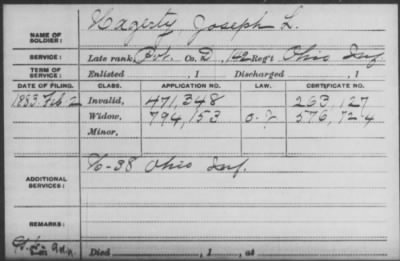 NAME OF SOLDIER: Hagerty, Joseph L.
SERVICE: Late rank, Pvt. Co. D, 142 Reg't Ohio Inf
TERM OF SERVICE: Enlisted , 1 Discharged , 1
DATE OF FILING. CLASS. APPLICATION NO. LAW. CERTIFICATE NO.
1883 Feb 2 Invalid, 471,348 263,127
Widow, 794,153 576,724
Minor,
ADDITIONAL SERVICES: 38 Ohio Inf.
REMARKS:
Died , 1 , at